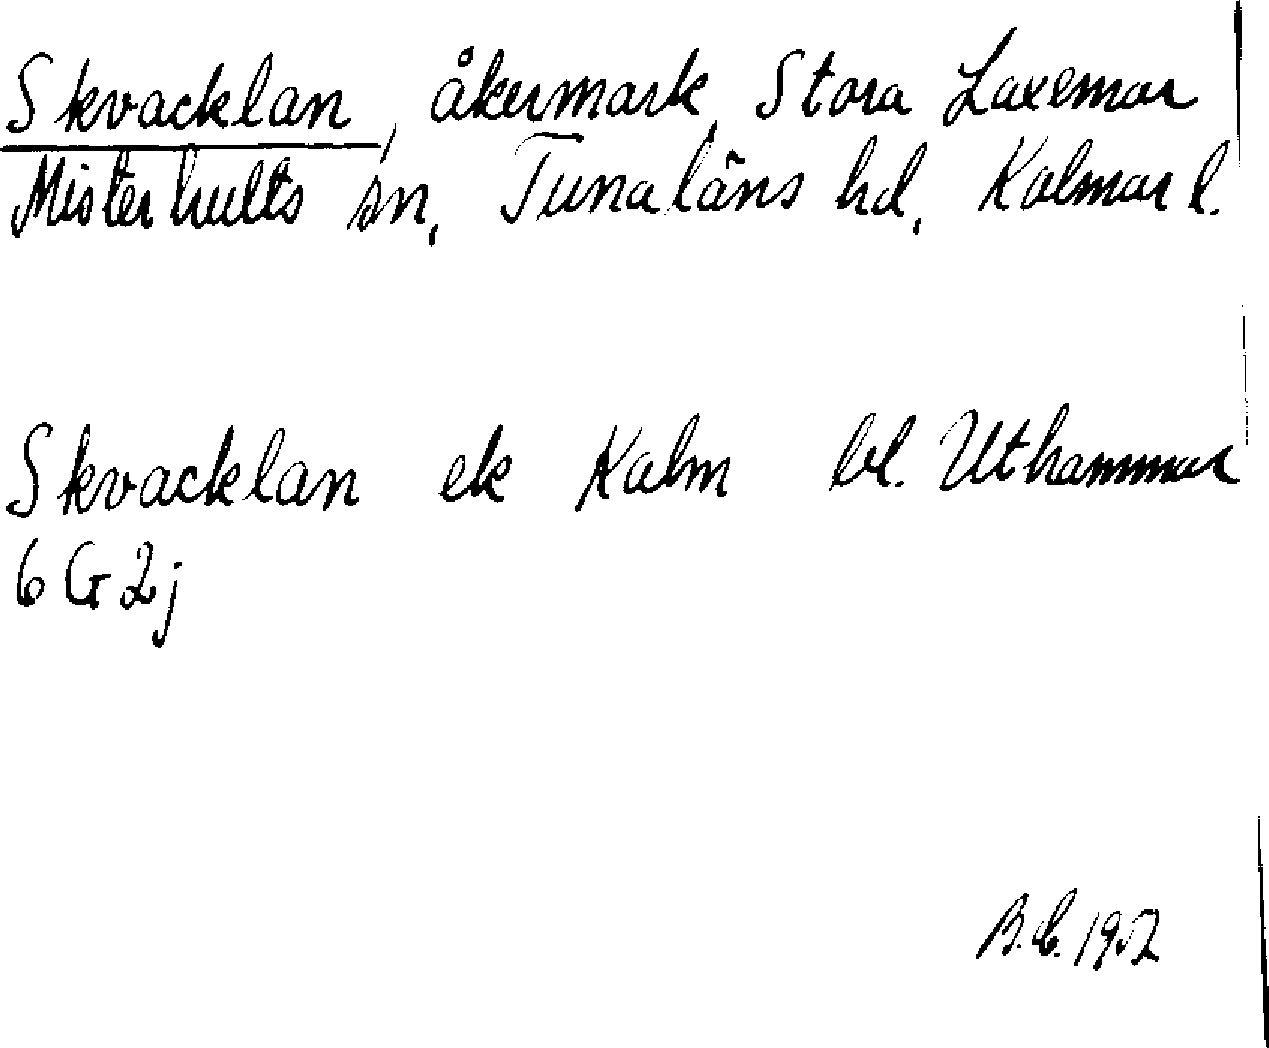 Skvacklan, åkermark, Stora Laxemar
Misterhults sn, Tunaläns hd, Kalmar l.
Skvacklan ek Kalm bl. Uthammar
6 G 2j
1952